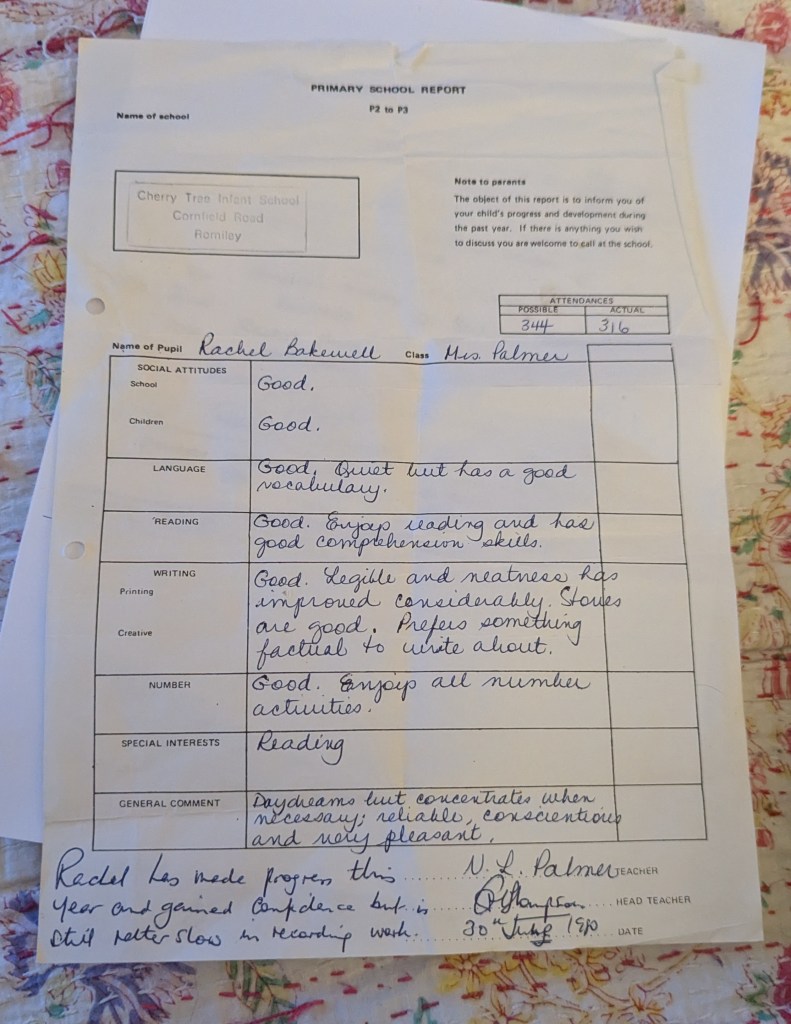 PRIMARY SCHOOL REPORT
P2 to P3
Name of school
Cherry Tree Infant School
Cornfield Road
Romiley
Note to parents
The object of this report is to inform you of
your child's progress and development during
the past year. If there is anything you wish
to discuss you are welcome to call at the school.
ATTENDANCES
POSSIBLE ACTUAL
344 316
Name of Pupil Rachel Bakewell Class Mrs. Palmer
SOCIAL ATTITUDES
School Good.
Children Good.
LANGUAGE Good. Quiet but has a good
vocabulary.
READING Good. Enjoys reading and has
good comprehension skills.
WRITING Good. Legible and neatness has
Printing improved considerably. Stories
Creative are good. Prefers something
factual to write about.
NUMBER Good. Enjoys all number
activities.
SPECIAL INTERESTS Reading
GENERAL COMMENT Daydreams but concentrates when
necessary; reliable, conscientious
and very pleasant.
Rachel has made progress this N. L. Palmer TEACHER
year and gained confidence but is Thompson HEAD TEACHER
still rather slow in recording work. 30th DATE